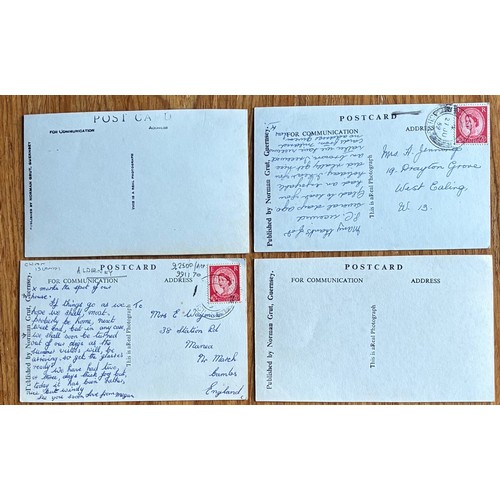 POST CARD
FOR COMMUNICATION
ADDRESS
PUBLISHED BY NORMAN GRUT, GUERNSEY
THIS IS A REAL PHOTOGRAPH
POSTCARD
FOR COMMUNICATION
ADDRESS
Published by Norman Grut, Guernsey.
This is a Real Photograph
Many thanks for
P.C. received
several days ago
Glad to hear you
had an enjoyable
holiday
Mrs A Jennings
19. Drayton Grove
West Ealing
W. 13.
CHAN
ISLANDS
ALDERNEY
POSTCARD
FOR COMMUNICATION
ADDRESS
Published by Norman Grut, Guernsey.
This is a Real Photograph
X marks the spot of our
house.
If things go as we
hope we shall most
probably be home, next
week end, but in any case,
we shall soon be turned
out of our digs as the
summer visitors will be
arriving, so get the glasses
ready. We have had two
or three days thick fog but
today it has been rather
nice but windy
See you soon love from
To
Mrs E
38 Station Rd
Manea
Nr. March
Cambs
England
POSTCARD
FOR COMMUNICATION
ADDRESS
Published by Norman Grut, Guernsey.
This is a Real Photograph